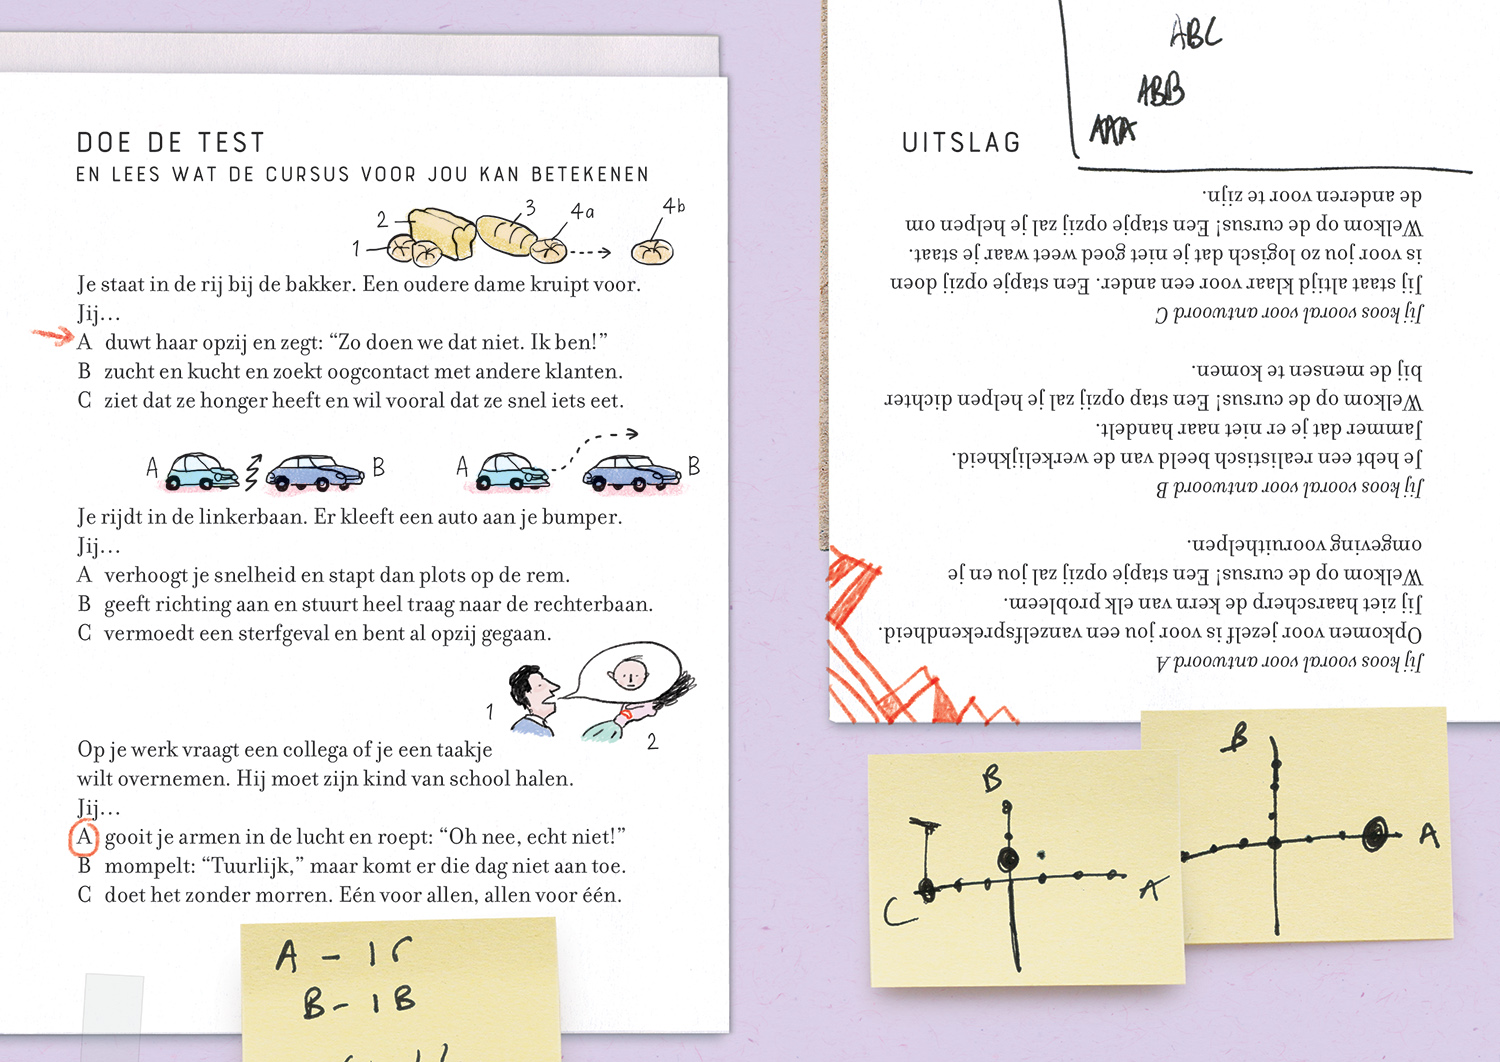 DOE DE TEST
EN LEES WAT DE CURSUS VOOR JOU KAN BETEKENEN
1
2
3
4a
4b
Je staat in de rij bij de bakker. Een oudere dame kruipt voor.
Jij...
A duwt haar opzij en zegt: “Zo doen we dat niet. Ik ben!”
B zucht en kucht en zoekt oogcontact met andere klanten.
C ziet dat ze honger heeft en wil vooral dat ze snel iets eet.
A
B
A
B
Je rijdt in de linkerbaan. Er kleeft een auto aan je bumper.
Jij...
A verhoogt je snelheid en stapt dan plots op de rem.
B geeft richting aan en stuurt heel traag naar de rechterbaan.
C vermoedt een sterfgeval en bent al opzij gegaan.
1
2
Op je werk vraagt een collega of je een taakje
wilt overnemen. Hij moet zijn kind van school halen.
Jij...
A gooit je armen in de lucht en roept: “Oh nee, echt niet!”
B mompelt: “Tuurlijk,” maar komt er die dag niet aan toe.
C doet het zonder morren. Eén voor allen, allen voor één.
B - 1B
ABC
ABB
AAA
UITSLAG
Jij koos vooral voor antwoord A
Opkomen voor jezelf is voor jou een vanzelfsprekendheid.
Jij ziet haarscherp de kern van elk probleem.
Welkom op de cursus! Een stapje opzij zal jou en je
omgeving vooruithelpen.
Jij koos vooral voor antwoord B
Je hebt een realistisch beeld van de werkelijkheid.
Jammer dat je er niet naar handelt.
Welkom op de cursus! Een stap opzij zal je helpen dichter
bij de mensen te komen.
Jij koos vooral voor antwoord C
Jij staat altijd klaar voor een ander. Een stapje opzij doen
is voor jou zo logisch dat je niet goed weet waar je staat.
Welkom op de cursus! Een stapje opzij zal je helpen om
de anderen voor te zijn.
B
A
C
B
A